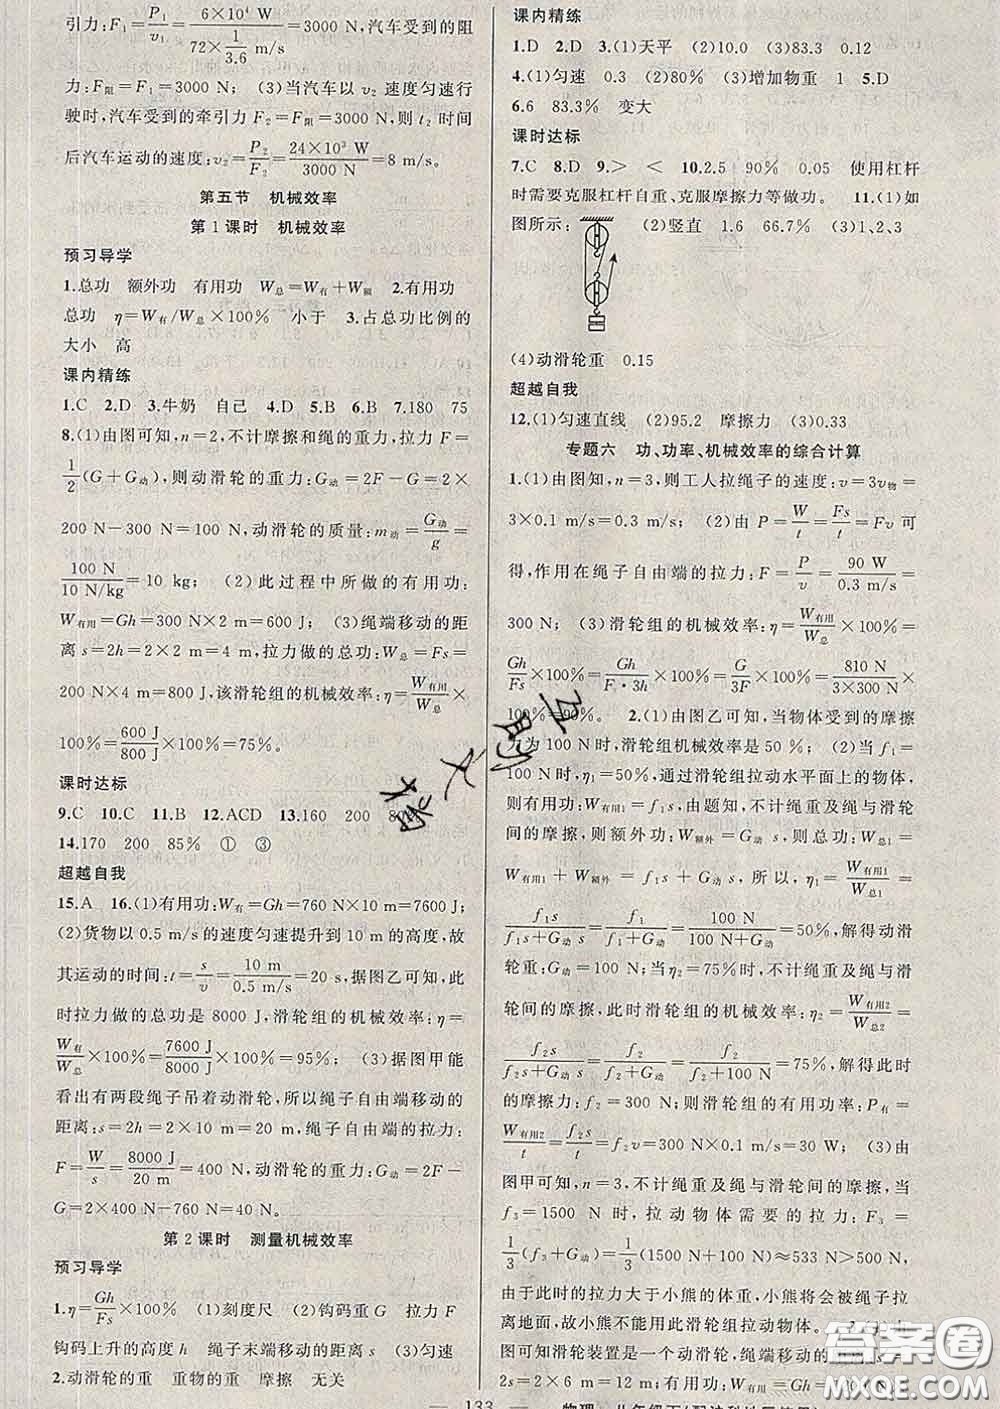 引力:F₁=P₁/v₁=6×10⁴ W/(72×1/3.6 m/s)=3000 N,汽车受到的阻
力:F阻=F₁=3000 N; (3)当汽车以 v₂ 速度匀速行
驶时,汽车受到的牵引力 F₂=F阻=3000 N,则 t₂ 时间
后汽车运动的速度:v₂=P₂/F₂=24×10³ W/3000 N=8 m/s。
第五节 机械效率
第1课时 机械效率
预习导学
1.总功 额外功 有用功 W总=W有+W额 2.有用功
总功 η=W有/W总×100% 小于 3.占总功比例的
大小 高
课内精练
1.C 2.D 3.牛奶 自己 4.D 5.B 6.B 7.180 75
8.(1)由图可知,n=2,不计摩擦和绳的重力,拉力 F=
1/2(G+G动),则动滑轮的重力:G动=2F-G=2×
200 N-300 N=100 N,动滑轮的质量:m动=G动/g=
100 N/10 N/kg=10 kg; (2)此过程中所做的有用功:
W有用=Gh=300 N×2 m=600 J; (3)绳端移动的距
离 s=2h=2×2 m=4 m,拉力做的总功:W总=Fs=
200 N×4 m=800 J,该滑轮组的机械效率:η=W有用/W总×
100%=600 J/800 J×100%=75%。
课时达标
9.C 10.C 11.B 12.ACD 13.160 200
14.170 200 85% ① ③
超越自我
15.A 16.(1)有用功:W有=Gh=760 N×10 m=7600 J;
(2)货物以 0.5 m/s 的速度匀速提升到 10 m 的高度,故
其运动的时间:t=s/v=10 m/0.5 m/s=20 s,据图乙可知,此
时拉力做的总功是 8000 J,滑轮组的机械效率:η=
W有/W总×100%=7600 J/8000 J×100%=95%; (3)据图甲能
看出有两段绳子吊着动滑轮,所以绳子自由端移动的
距离:s=2h=2×10 m=20 m,绳子自由端的拉力:
F=W/s=8000 J/20 m=400 N,动滑轮的重力:G动=2F-
G=2×400 N-760 N=40 N。
第2课时 测量机械效率
预习导学
1.η=Gh/Fs×100% (1)刻度尺 (2)钩码重 G 拉力 F
钩码上升的高度 h 绳子末端移动的距离 s (3)匀速
2.动滑轮的重 重物的重 摩擦 无关
课内精练
1.D 2.D 3.(1)天平 (2)10.0 (3)83.3 0.12
4.(1)匀速 0.3 (2)80% (3)增加物重 1 5.D
6.6 83.3% 变大
课时达标
7.C 8.D 9.> < 10.2.5 90% 0.05 使用杠杆
时需要克服杠杆自重、克服摩擦力等做功。 11.(1)如
图所示: (2)竖直 1.6 66.7% (3)1、2、3
(4)动滑轮重 0.15
超越自我
12.(1)匀速直线 (2)95.2 摩擦力 (3)0.33
专题六 功、功率、机械效率的综合计算
1.(1)由图知,n=3,则工人拉绳子的速度:v=3v物=
3×0.1 m/s=0.3 m/s; (2)由 P=W/t=Fs/t=Fv 可
得,作用在绳子自由端的拉力:F=P/v=90 W/0.3 m/s=
300 N; (3)滑轮组的机械效率:η=W有用/W总×100%=
Gh/Fs×100%=Gh/F·3h×100%=G/3F×100%=810 N/3×300 N×
100%=90%。 2.(1)由图乙可知,当物体受到的摩擦
力为 100 N时,滑轮组机械效率是 50 %; (2)当 f₁=
100 N时,η₁=50%,通过滑轮组拉动水平面上的物体,
则有用功:W有用1=f₁s,由题知,不计绳重及绳与滑轮
间的摩擦,则额外功:W额外=G动 s,则总功:W总1=
W有用1+W额外=f₁s+G动 s,所以,η₁=W有用1/W总1=
f₁s/(f₁s+G动 s)=f₁/(f₁+G动)=100 N/(100 N+G动)=50%,解得动滑
轮重:G动=100 N;当 η₂=75%时,不计绳重及绳与滑
轮间的摩擦,此时滑轮组的机械效率:η₂=W有用2/W总2=
f₂s/(f₂s+G动 s)=f₂/(f₂+100 N)=75%,解得此时
的摩擦力:f₂=300 N;则滑轮组的有用功率:P有=
W有用2/t=f₂s/t=f₂v=300 N×0.1 m/s=30 W; (3)由
图甲可知,n=3,不计绳重及绳与滑轮间的摩擦,当
f₃=1500 N 时,拉动物体需要的拉力:F₃=
1/3(f₃+G动)=1/3(1500 N+100 N)≈533 N>500 N,
由于此时的拉力大于小熊的体重,小熊将会被绳子拉
离地面,故小熊不能用此滑轮组拉动物体。
图可知滑轮装置是一个动滑轮,绳端移动的距离:s=
2s=2×6 m=12 m;有用功:W
133
答案圈
MXQE.COM